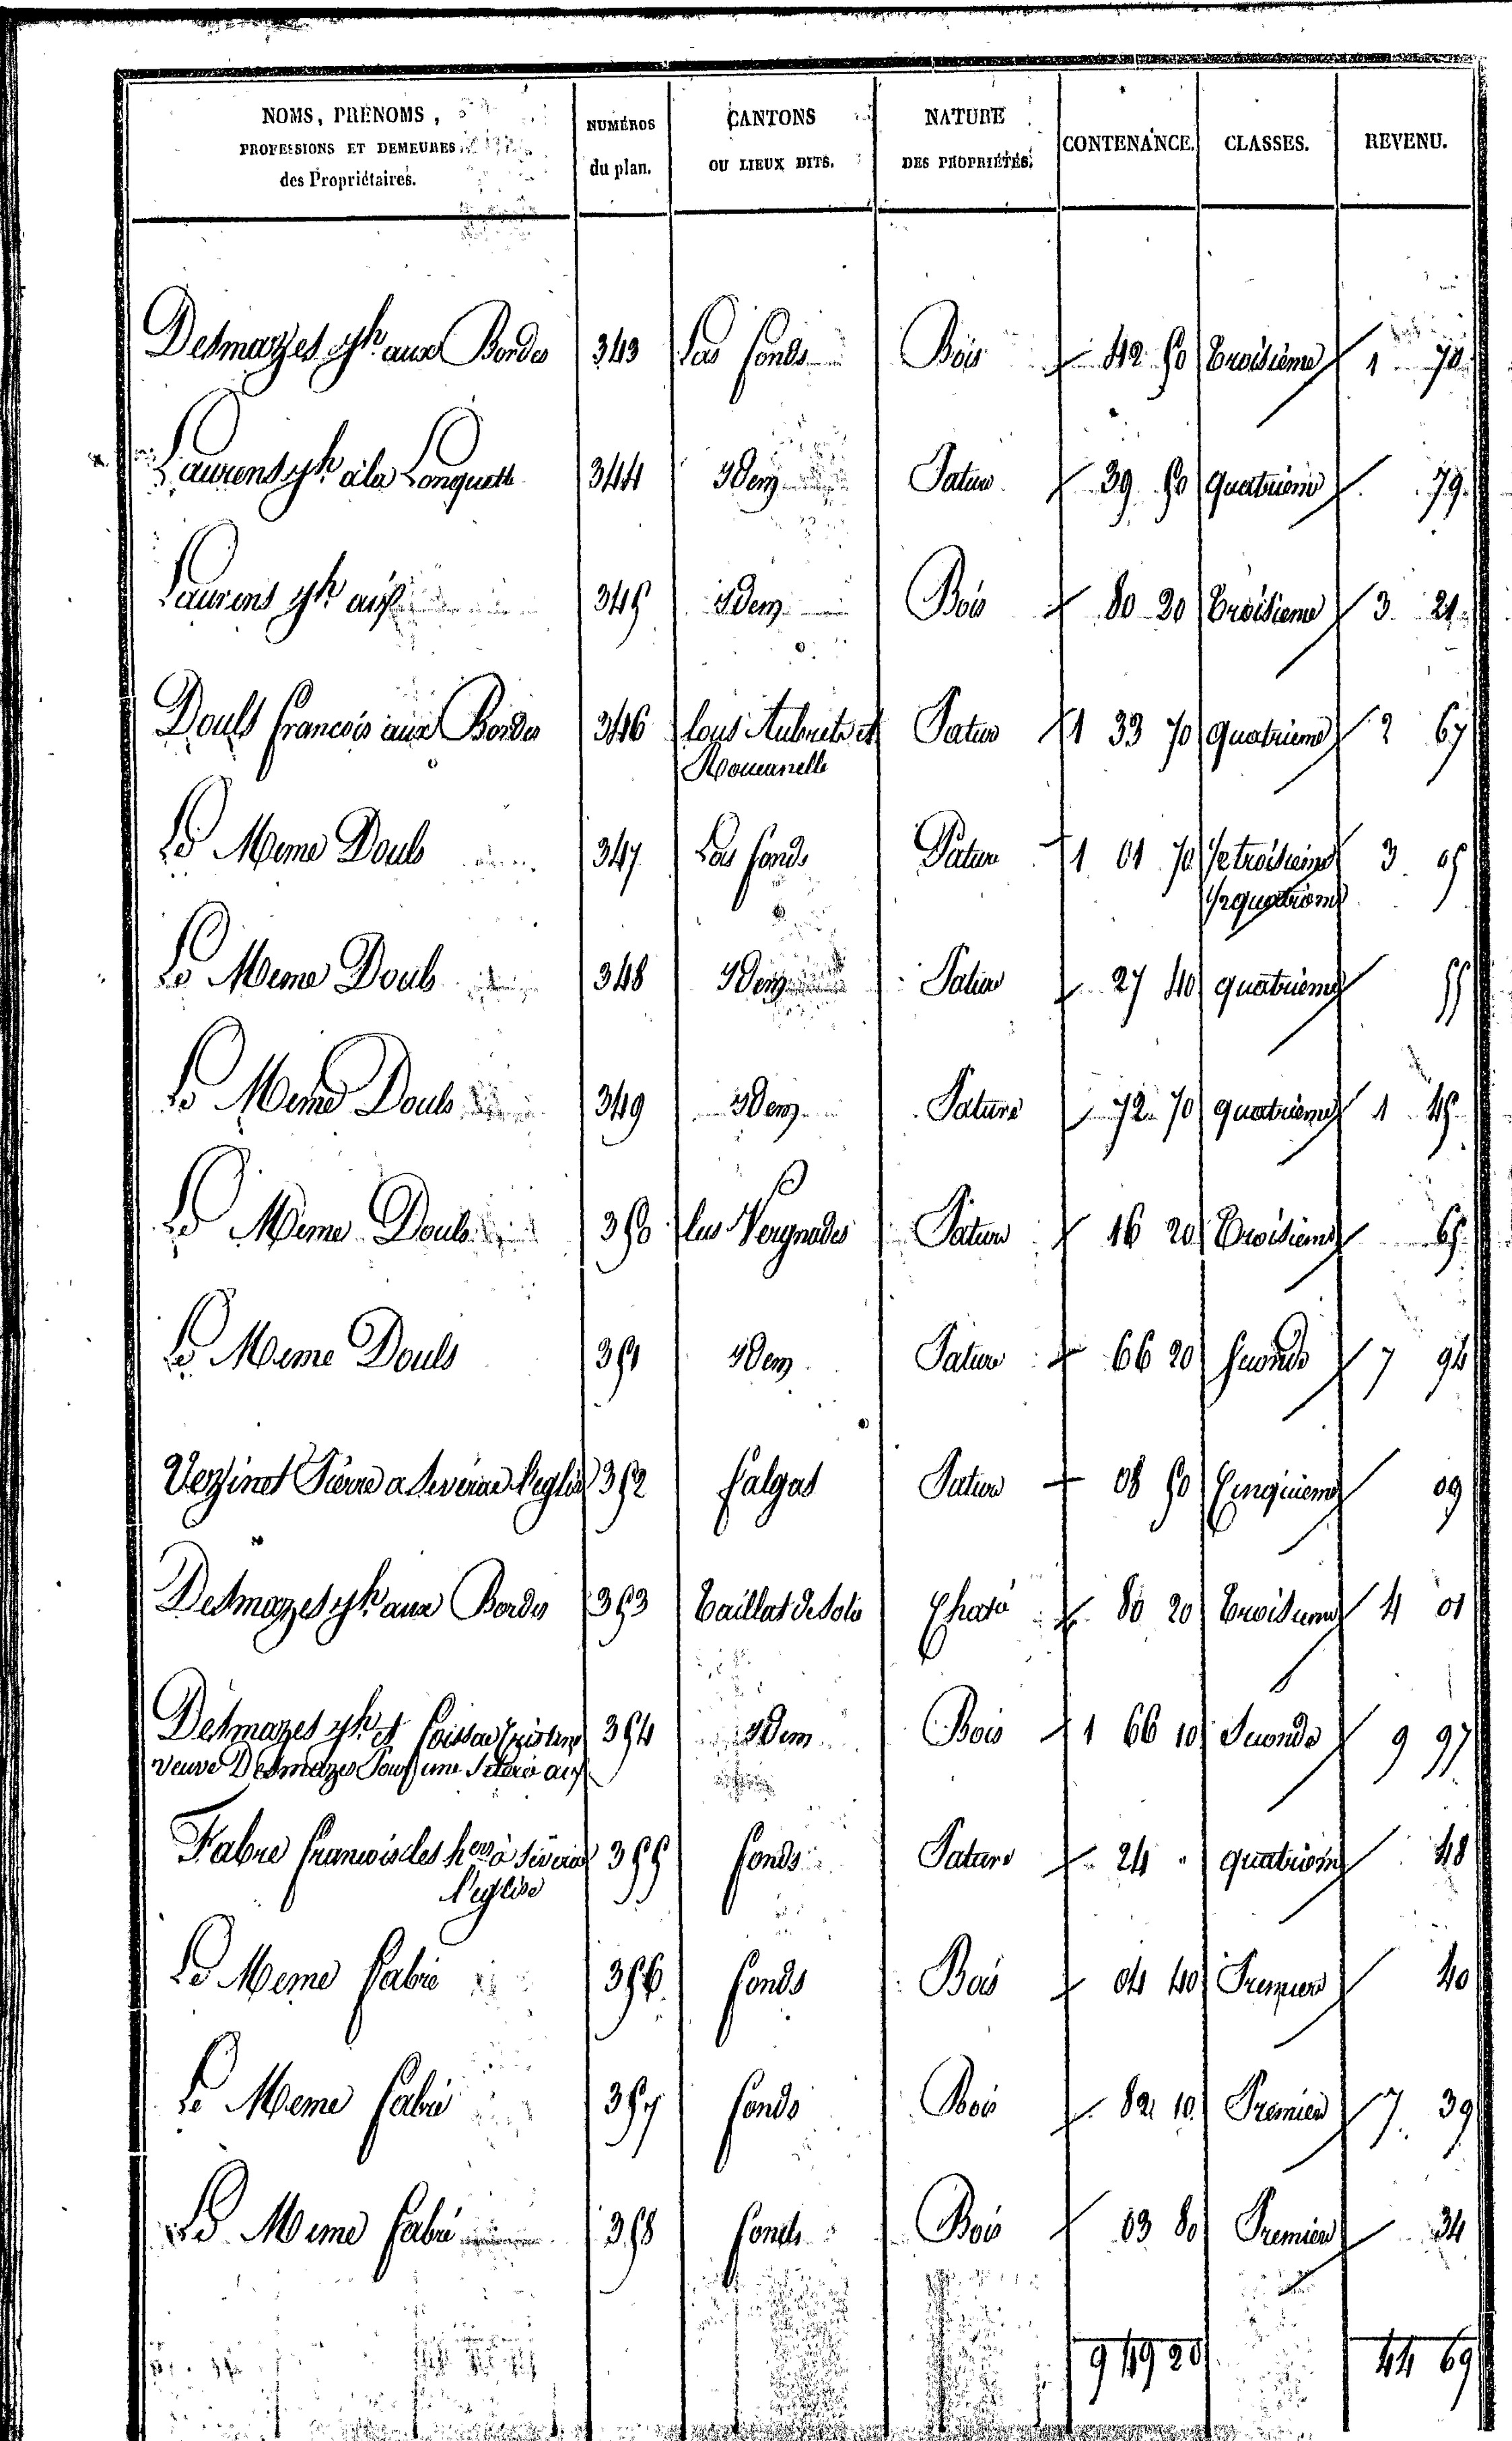 NOMS, PRÉNOMS, PROFESSIONS ET DEMEURES des Propriétaires. NUMÉROS du plan. CANTONS OU LIEUX DITS. NATURE DES PROPRIÉTÉS. CONTENANCE. CLASSES. REVENU.
Desmazes jh aux Bordes 343 Las fonds Bois 42 50 Troisieme 1 70
Laurens jh a la Longuette 344 Idem Pature 39 50 quatrieme 79
Laurens jh 345 Idem Bois 80 20 Troisieme 3 21
Douls francois aux Bordes 346 lous et Pature 1 33 70 quatrieme 2 67
Le Meme Douls 347 Las fonds Pature 1 01 70 1/2 troisieme 3 05
1/2 quatrieme
Le Meme Douls 348 Idem Pature 27 40 quatrieme 55
Le Meme Douls 349 Idem Pature 72 70 quatrieme 1 45
Le Meme Douls 350 las Vergnades Pature 16 20 Troisieme 65
Le Meme Douls 351 Idem Pature 66 20 seconde 7 94
Vezinet Pierre a Severac l'eglise 352 falgas Pature 08 50 Cinquieme 09
Desmazes jh aux Bordes 353 Taillat de Solo 80 20 Troisieme 4 01
Desmazes jh et 354 Idem Bois 1 66 10 Seconde 9 97
veuve Desmazes
Fabre francois les hers à Séverac 355 fonds Pature 24 quatrieme 48
l'eglise
Le Meme fabre 356 fonds Bois 04 40 Premiere 40
Le Meme fabre 357 fonds Bois 82 10 Premiere 7 39
Le Meme fabre 358 fonds Bois 03 80 Premiere 34
9 49 20 44 69